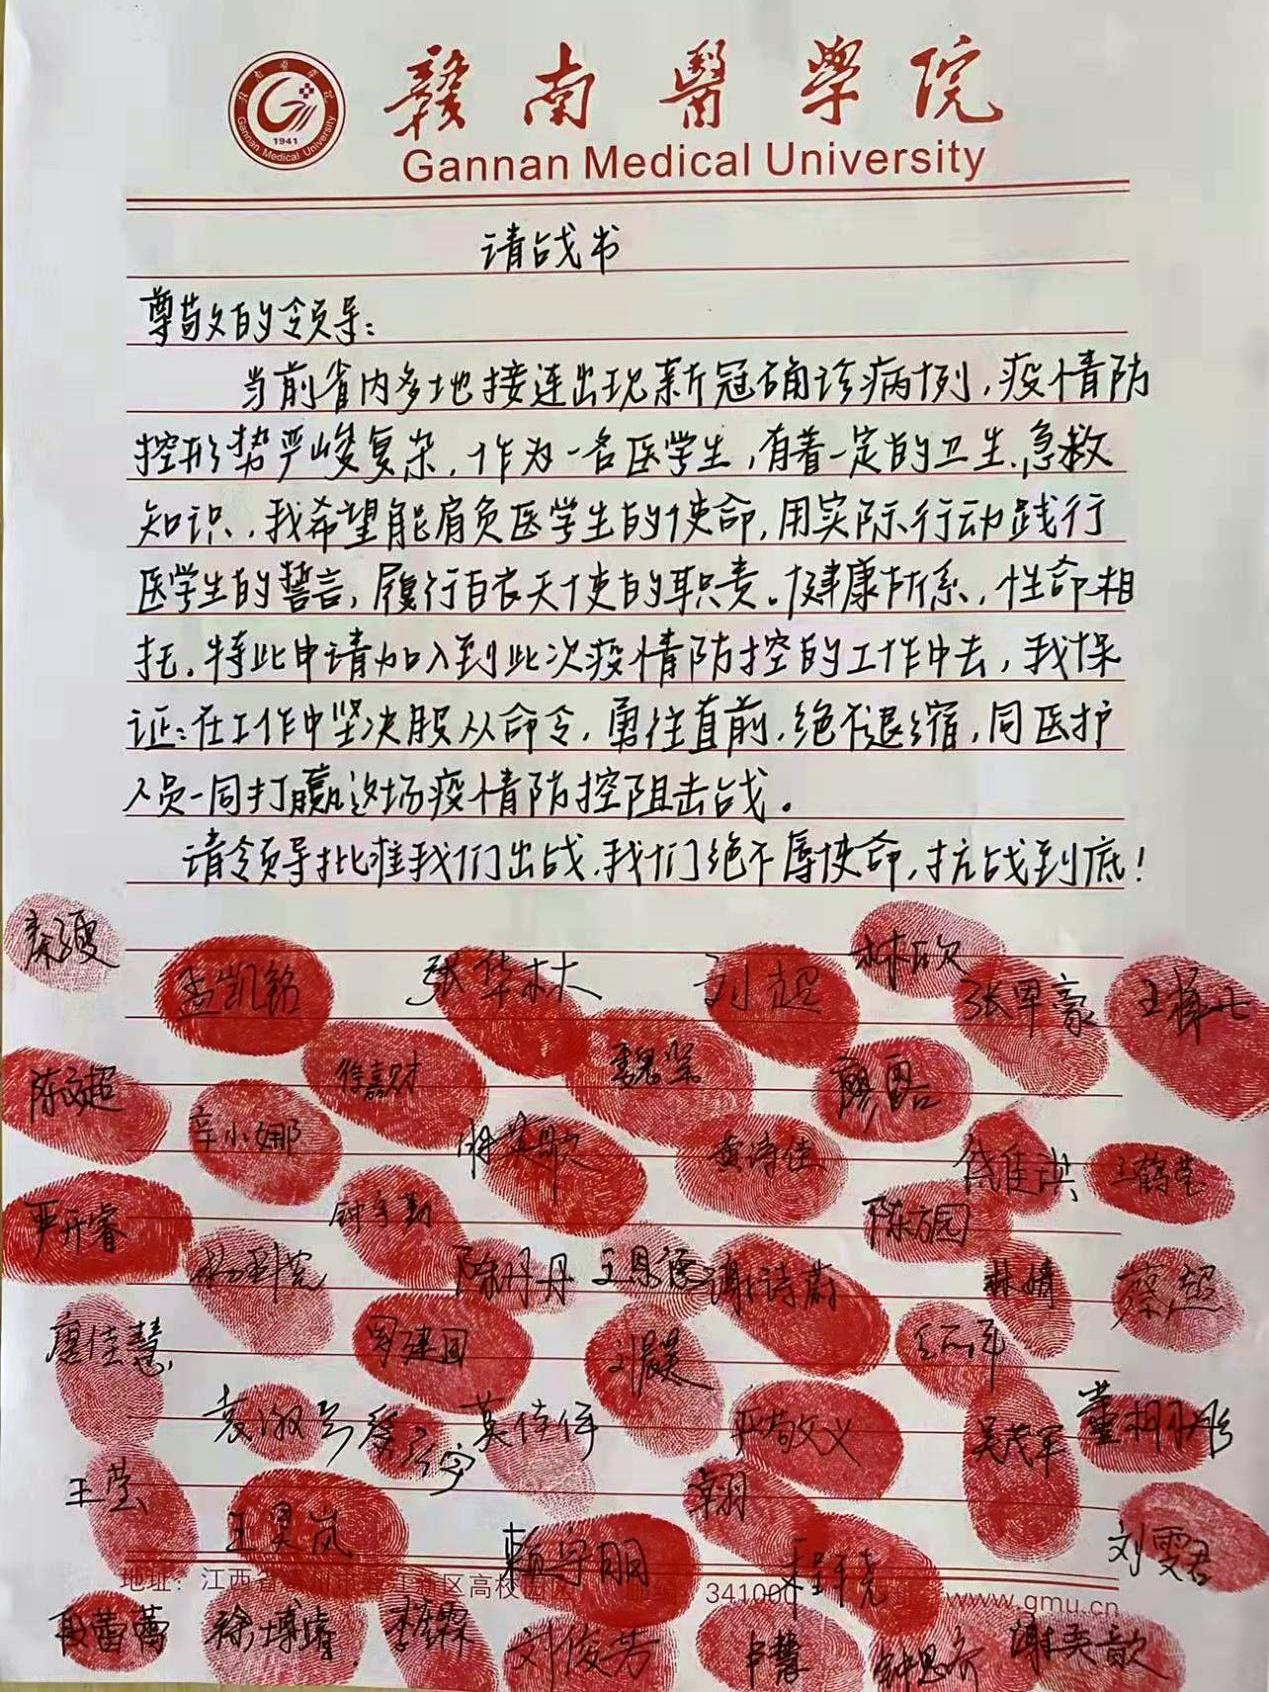 贛南醫學院
Gannan Medical University
1941
Gannan Medical University
请战书
尊敬的领导：
当前省内多地接连出现新冠确诊病例，疫情防
控形势严峻复杂，作为一名医学生，有着一定的卫生、急救
知识，我希望能肩负医学生的使命，用实际行动践行
医学生的誓言，履行白衣天使的职责。健康所系，性命相
托。特此申请加入到此次疫情防控的工作中去，我保
证：在工作中坚决服从命令，勇往直前，绝不退缩，同医护
人员一同打赢这场疫情防控阻击战。
请领导批准我们出战，我们绝不辱使命，抗战到底！
孟凯铭 张华林 刘超 林欣
陈文超 徐嘉财 魏坚 廖勇
辛小娜 黄涛佳
严开睿 陈方园
陈丹丹 王恩德 谢诗蔚 林婧 蔡超
唐佳慧 罗建国 刘晨
莫佳伟 严敬义 吴茂军
王莹
王昊岚 赖宇明 刘雯君
地址：江西省 区高校 341000 www.gmu.cn
徐博睿 刘俊芳 卢慧 谢英歆